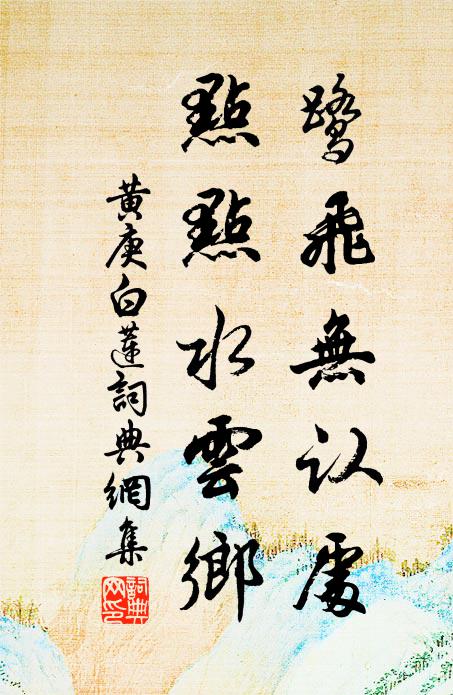 鷺飛無認處
點點水雲鄉
黃庚白蓮詞典網集
詞典網印